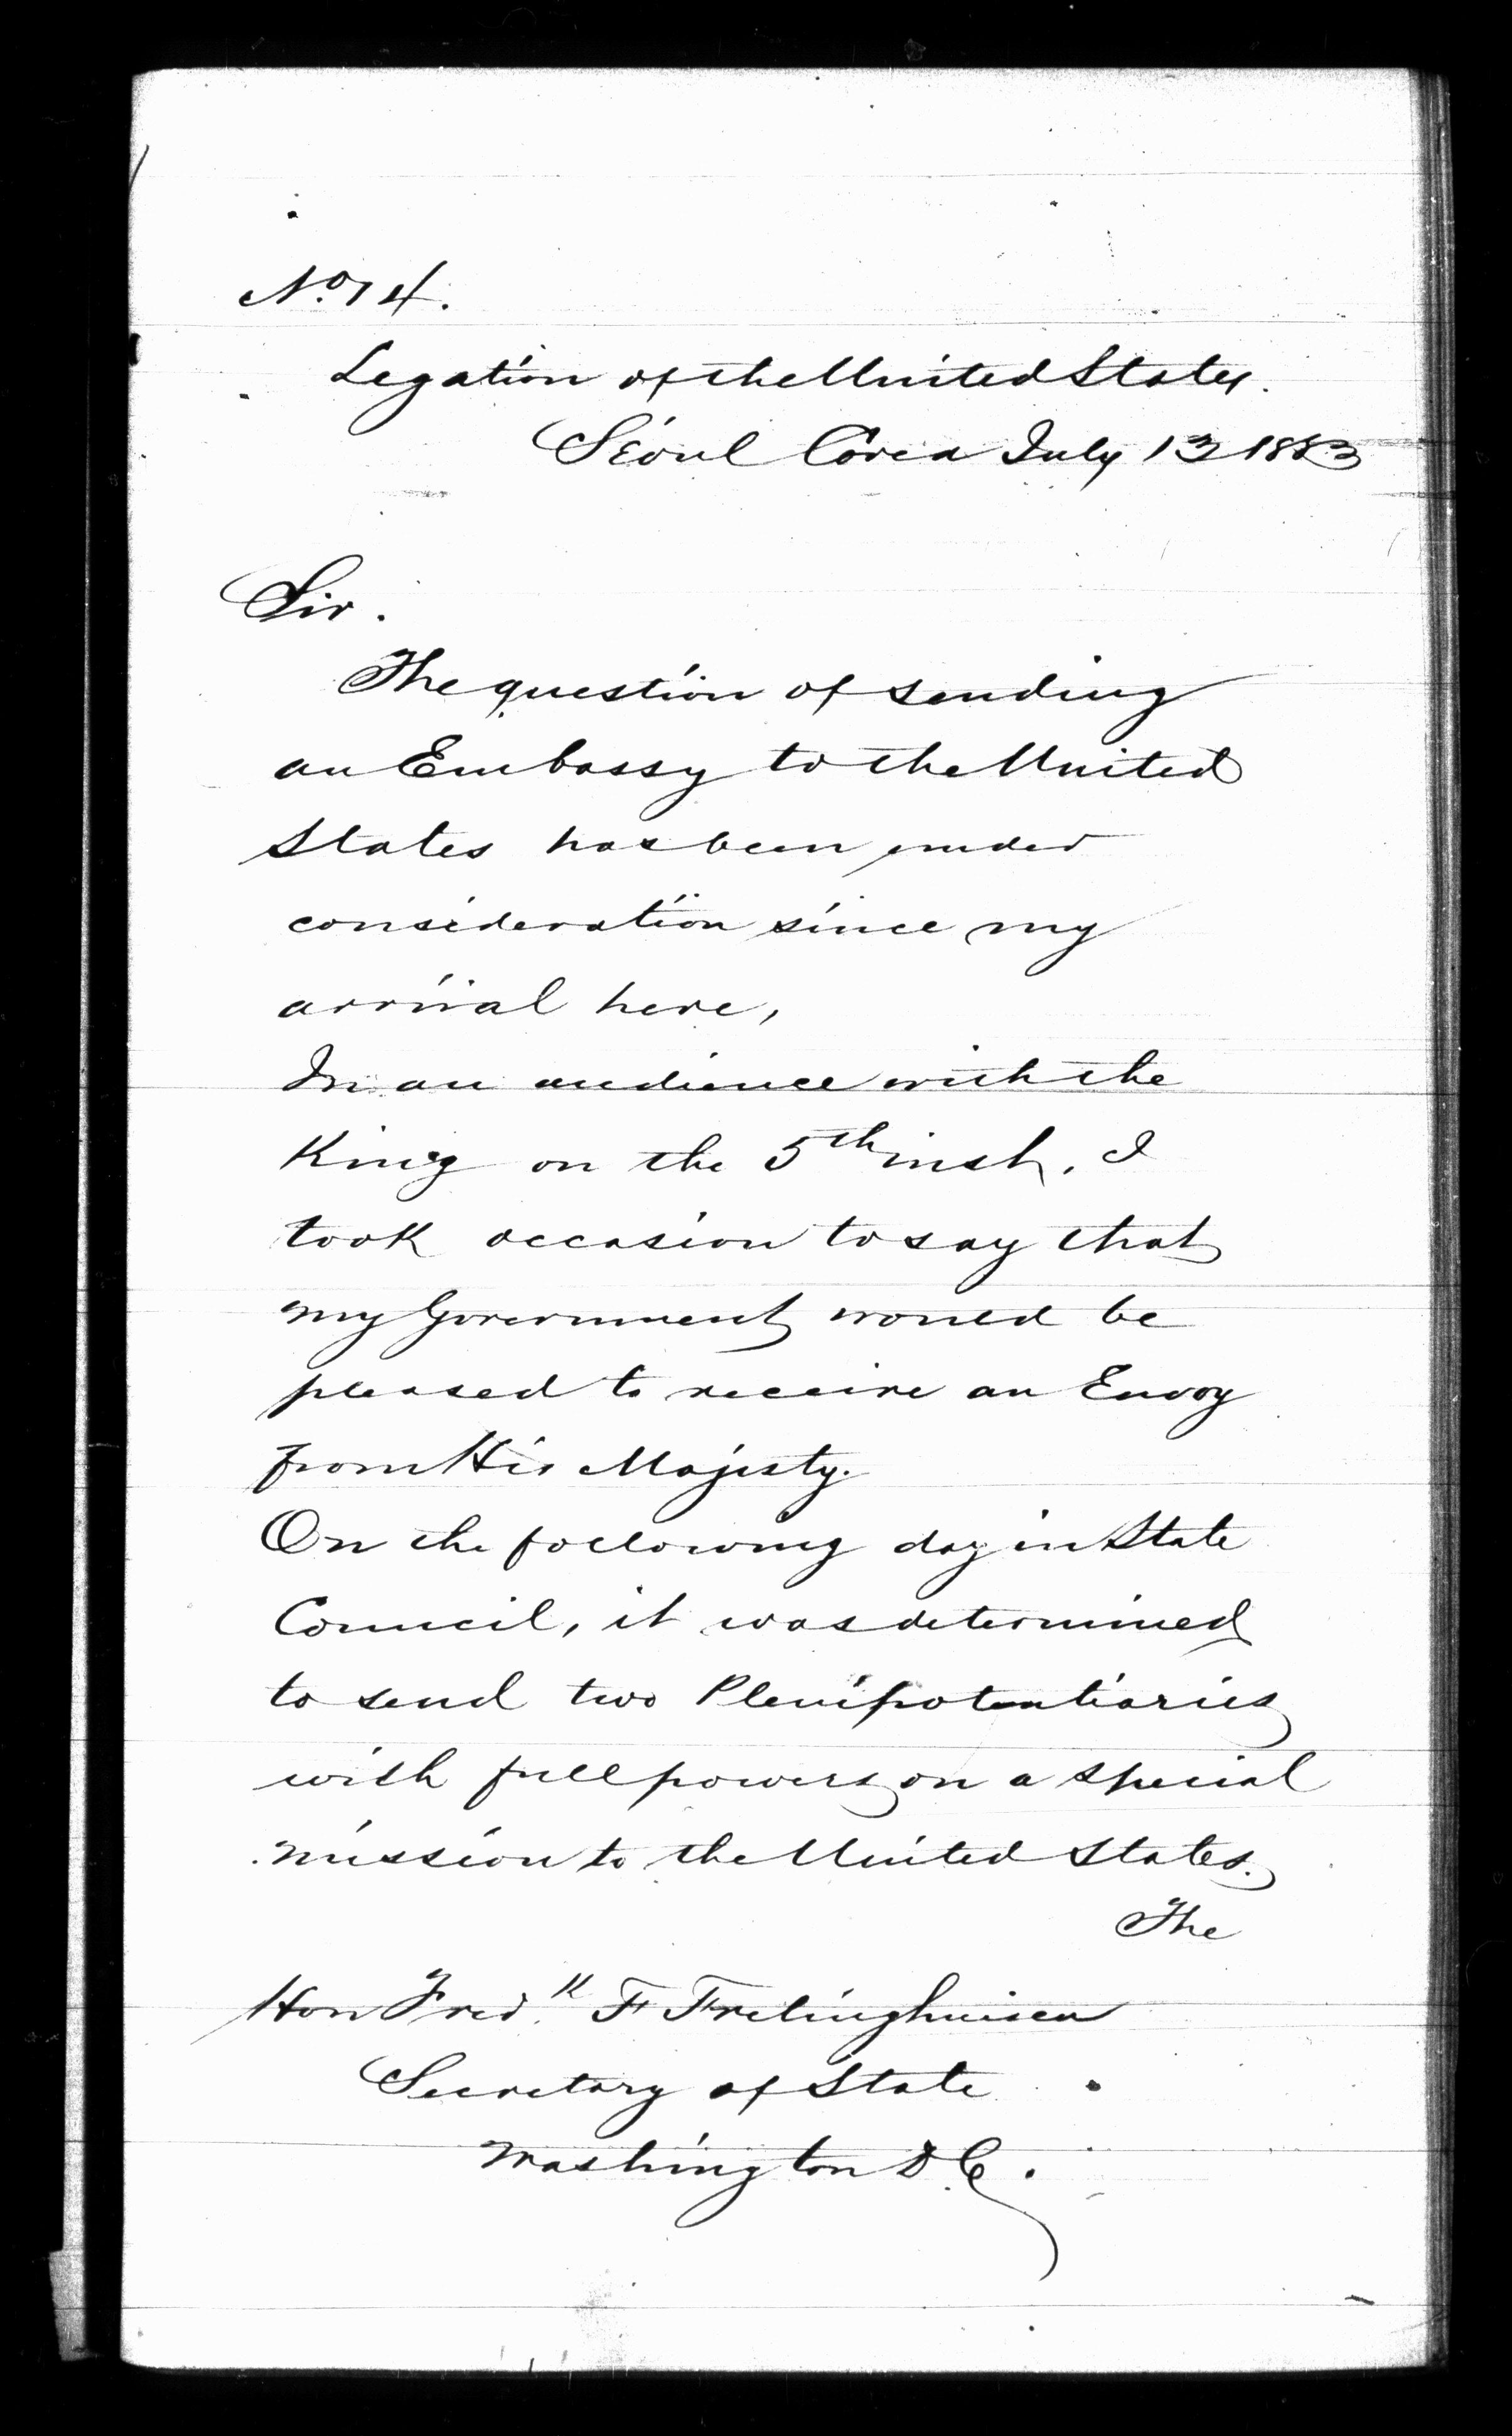 No. 14.
Legation of the United States.
Séoul Corea July 13 1883
Sir.
The question of sending
an Embassy to the United
States has been under
consideration since my
arrival here,
In an audience with the
King on the 5th inst, I
took occasion to say that
my Government would be
pleased to receive an Envoy
from His Majesty.
On the following day in State
Council, it was determined
to send two Plenipotentiaries
with full powers on a special
mission to the United States.
The
Hon Fred.k F Frelinghuisen
Secretary of State
Washington D.C.